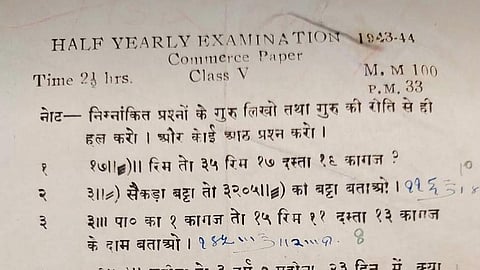 HALF YEARLY EXAMINATION 1943-44
Commerce Paper
Time 2½ hrs. Class V M. M 100
P. M. 33
नोट— निम्नांकित प्रश्नों के गुरु लिखो तथा गुरु की रीति से ही
हल करो । और कोई आठ प्रश्न करो ।
१ १७॥=)॥ रिम तो ३५ रिम १७ दस्ता १६ कागज ?
२ ३॥=) सैकड़ा बट्टा तो ३२०५॥=) का बट्टा बताओ ।
३ ३॥। पा० का १ कागज तो १५ रिम ११ दस्ता १३ कागज
के दाम बताओ ।